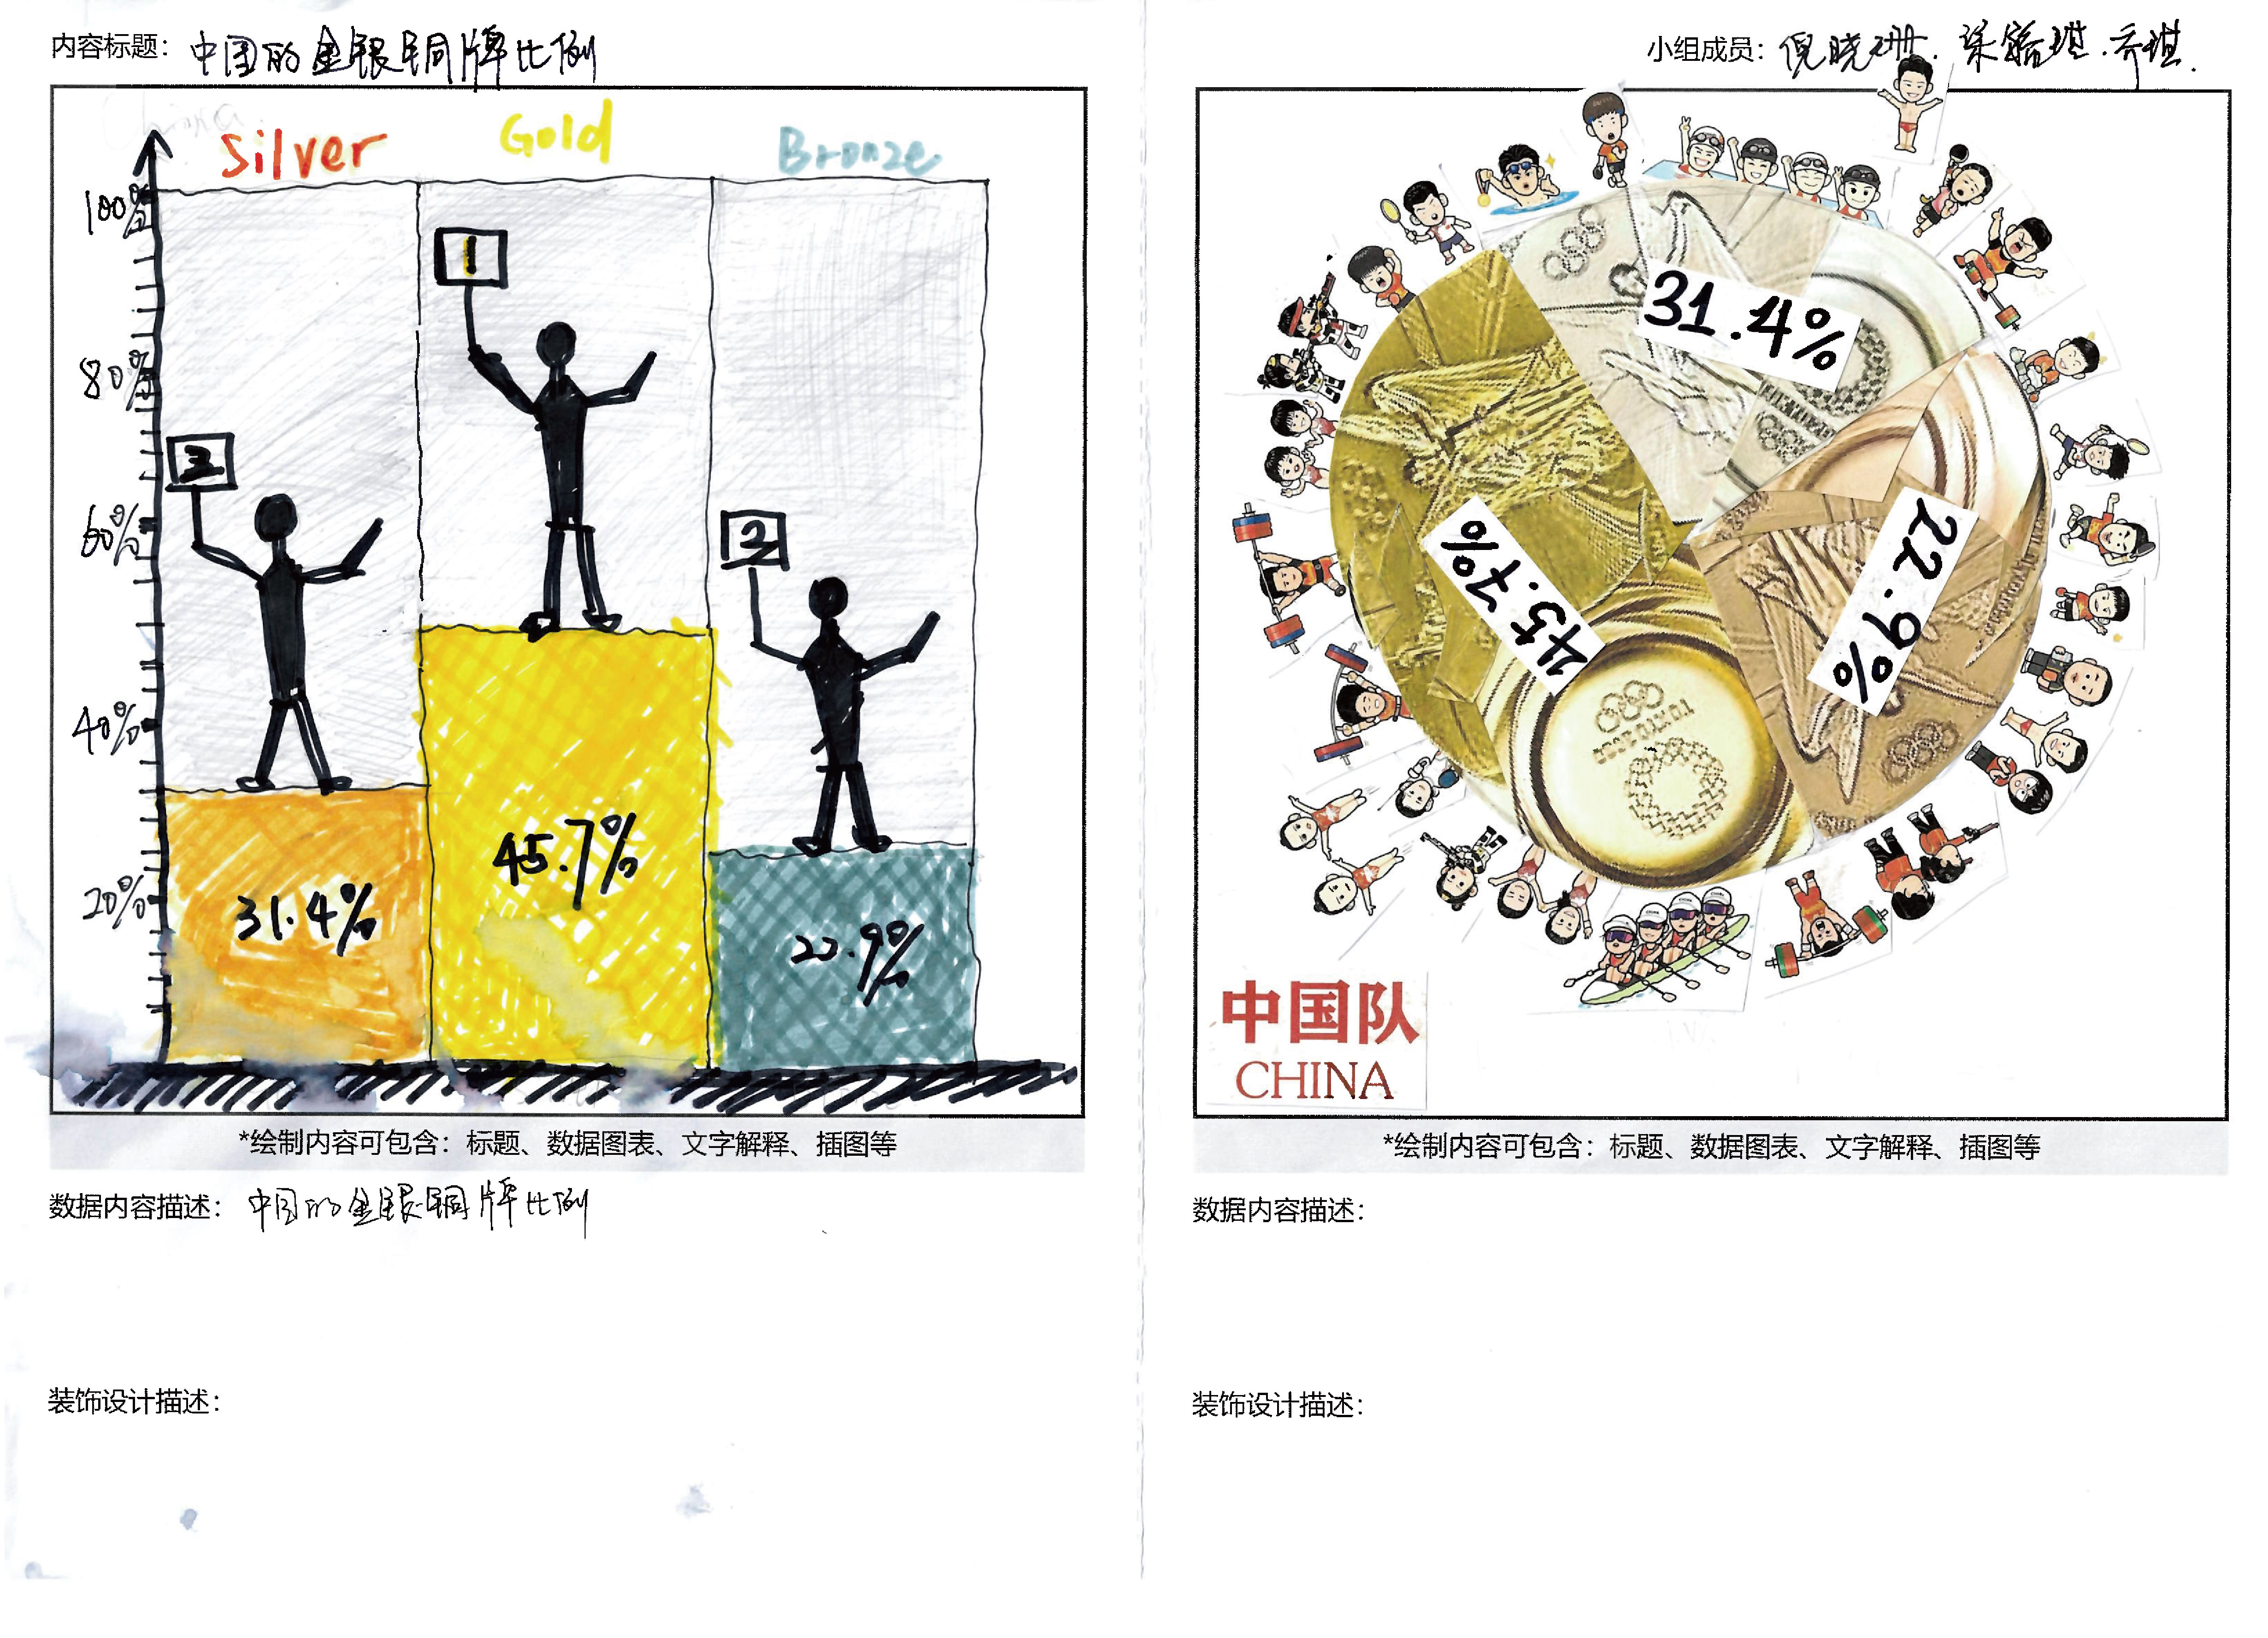 内容标题：中国的金银铜牌比例
Silver Gold Bronze
100%
80%
60%
40%
20%
3
1
2
31.4%
45.7%
22.9%
*绘制内容可包含：标题、数据图表、文字解释、插图等
数据内容描述：中国的金银铜牌比例
装饰设计描述：
小组成员：倪晓珊．梁 琪．乔琪．
31.4%
45.7%
22.9%
TOKYO 2020
中国队
CHINA
*绘制内容可包含：标题、数据图表、文字解释、插图等
数据内容描述：
装饰设计描述：